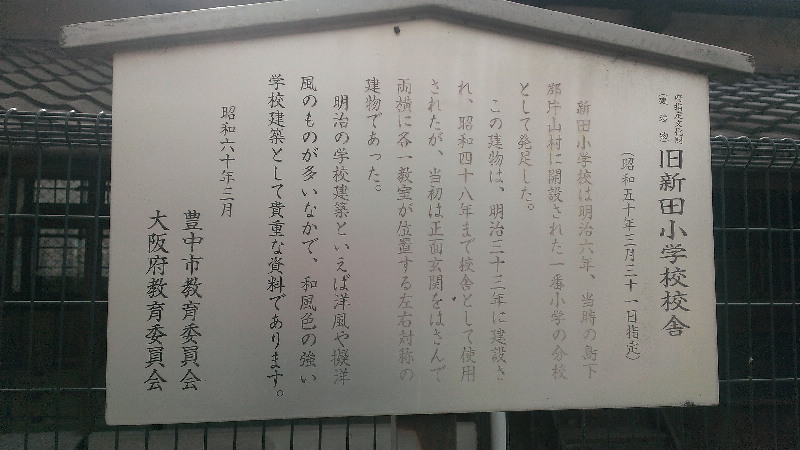 府指定文化財
旧新田小学校校舎
(昭和五十年三月三十一日指定)
新田小学校は明治六年、当時の島下
郡片山村に開設された一番小学の分校
として発足した。
この建物は、明治三十三年に建設さ
れ、昭和四十八年まで校舎として使用
されたが、当初は正面玄関をはさんで
両横に各一教室が位置する左右対称の
建物であった。
明治の学校建築といえば洋風や擬洋
風のものが多いなかで、和風色の強い
学校建築として貴重な資料であります。
昭和六十年三月
豊中市教育委員会
大阪府教育委員会